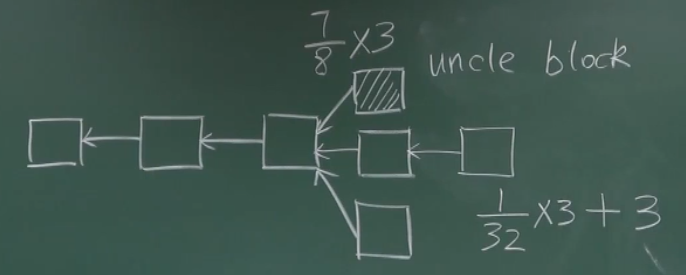 7/8 ×3
uncle block
1/32 ×3+3